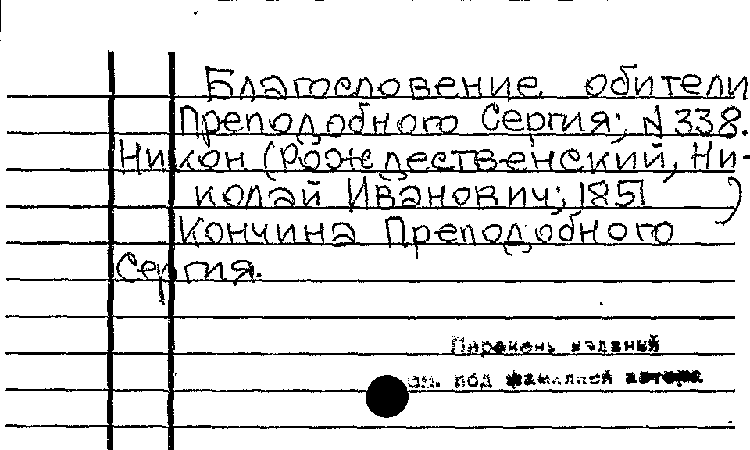 Благословение обители
Преподобного Сергия; N 338.
Никон (Рождественский, Ни-
колай Иванович; 1851 )
Кончина Преподобного
Сергия.
Перечень изданий
см. под фамилией автора